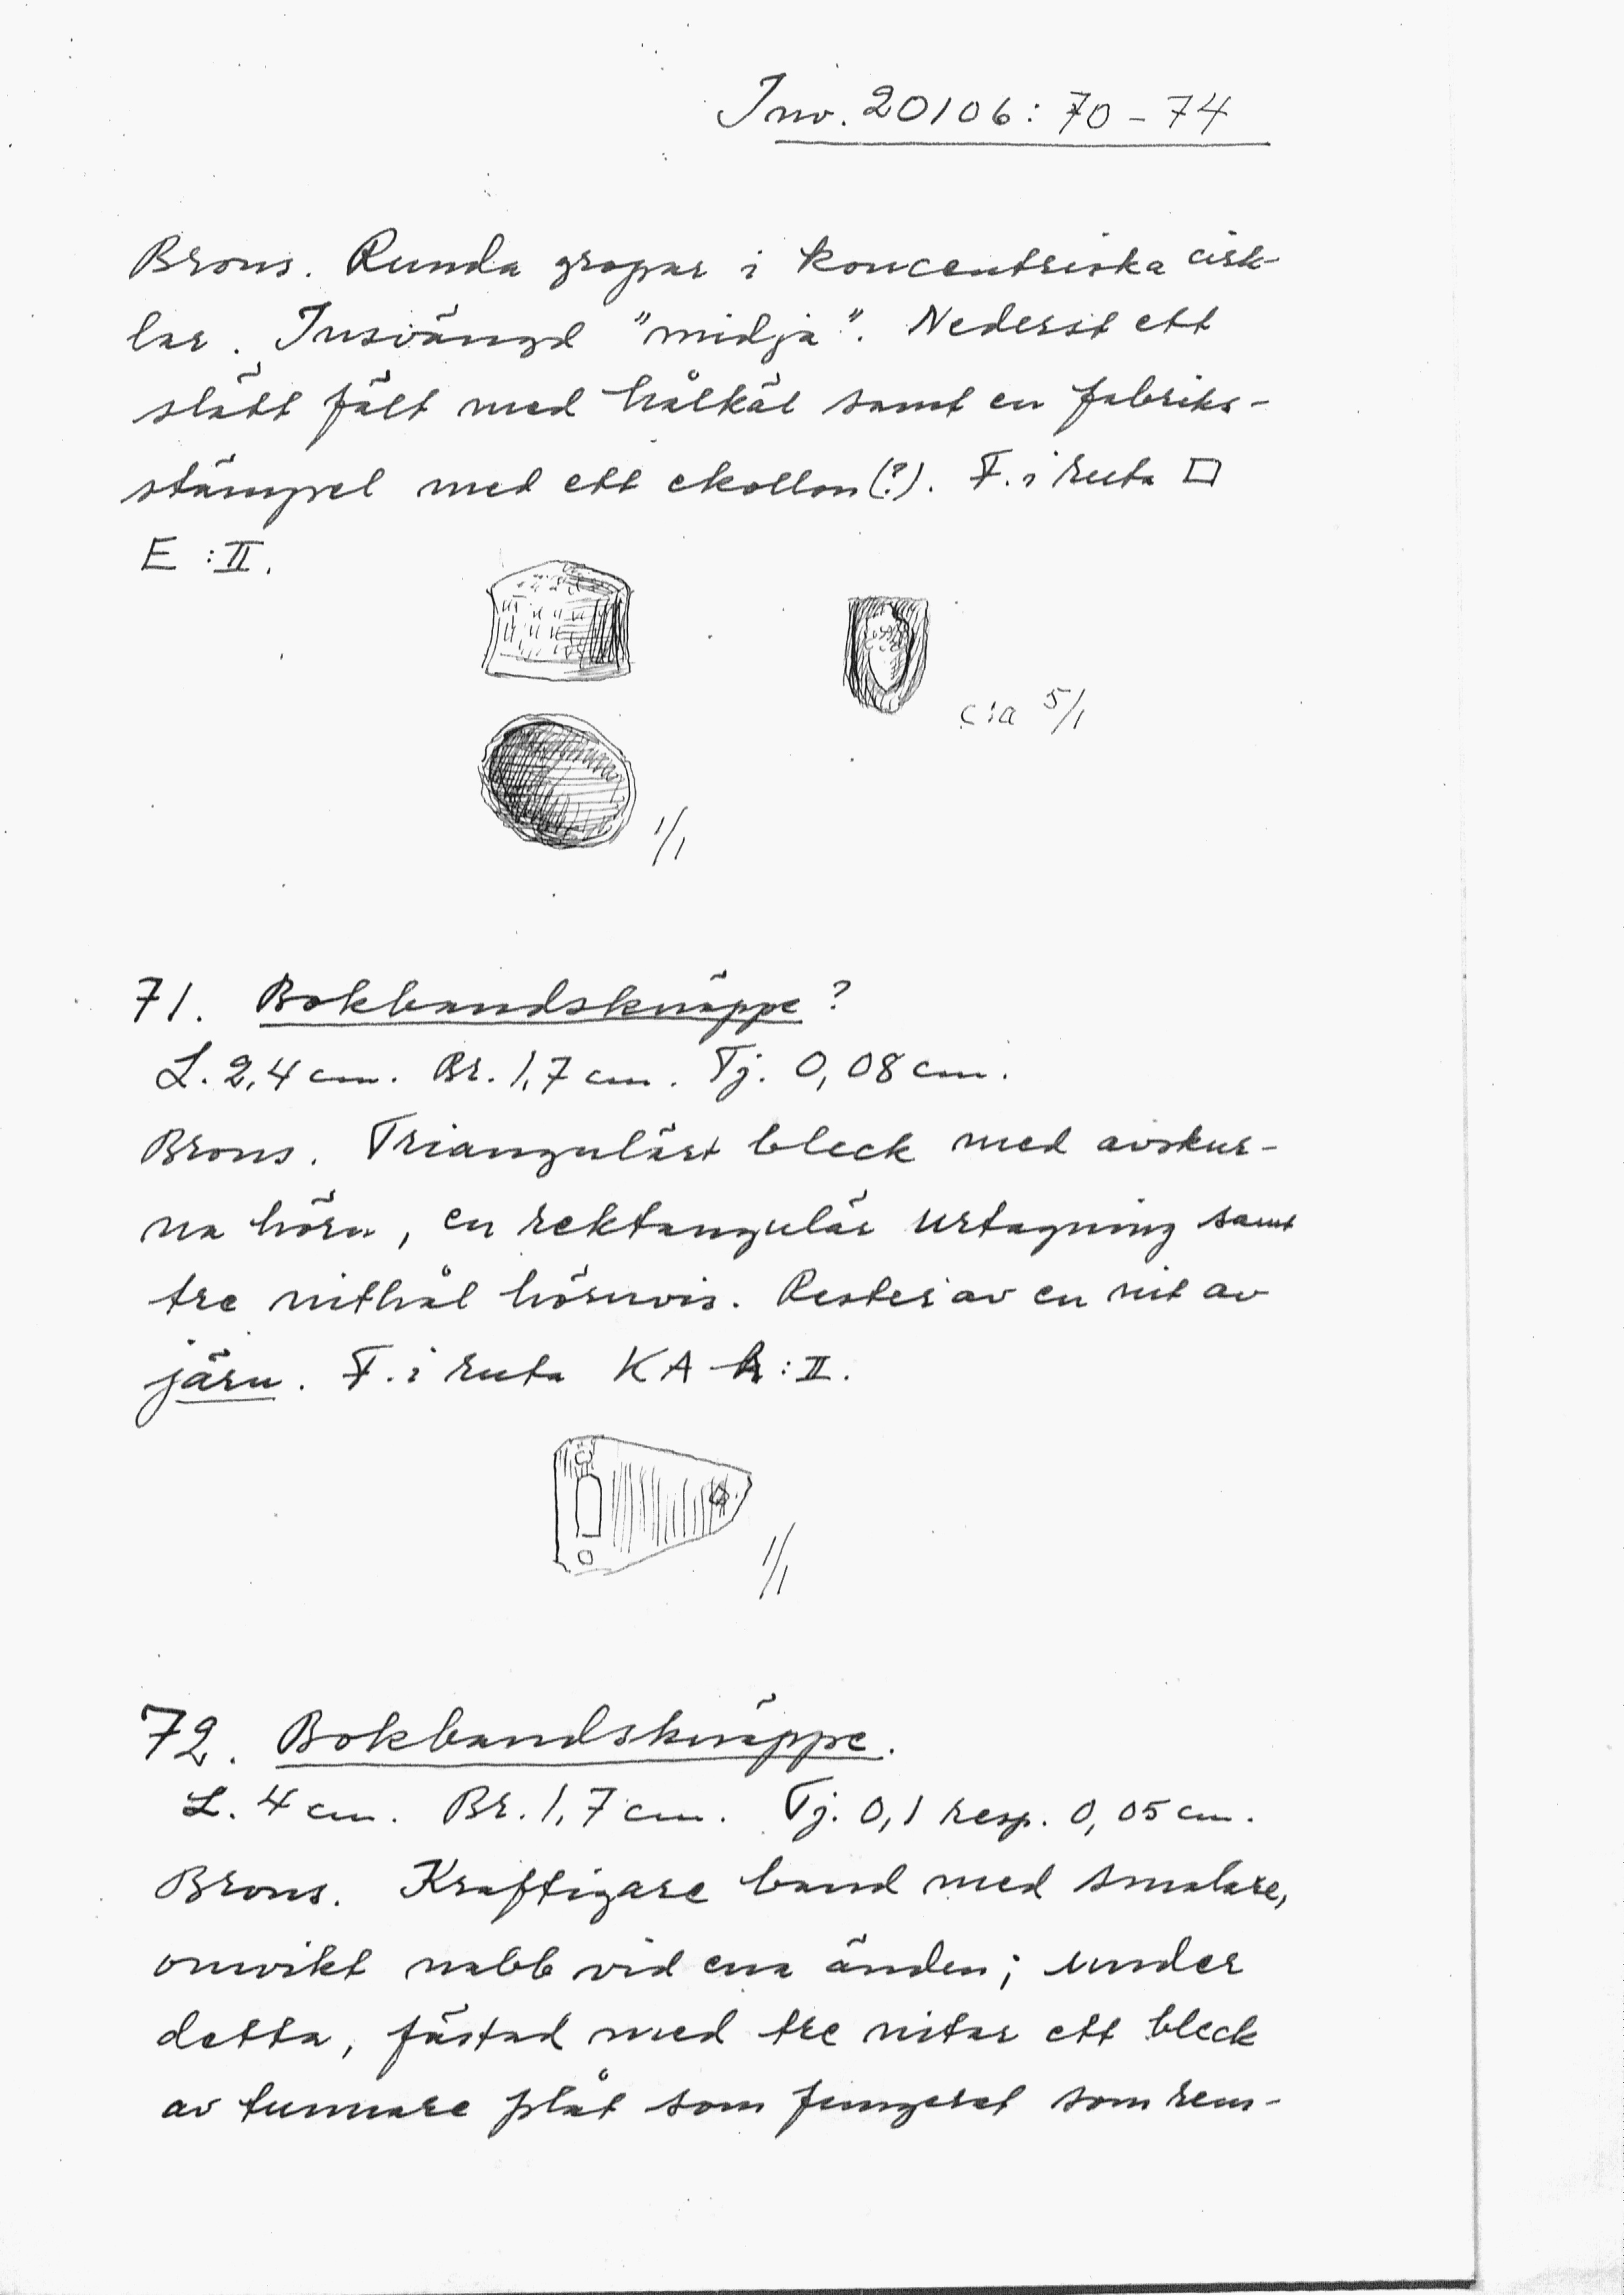 Inv. 20106: 70-74
Brons. Runda gropar i koncentriska cirk-
lar. Insvängd "midja". Nederst ett
slätt fält med hålkäl samt en fabriks-
stämpel med ett ekollon(?). F. i ruta □
E :II.
c:a 5/1
1/1
71. Bokbandsknäppe?
L. 2,4 cm. Br. 1,7 cm. Tj. 0,08 cm.
Brons. Triangulärt bleck med avskur-
na hörn, en rektangulär urtagning samt
tre nithål hörnvis. Rester av en nit av
järn. F. i ruta KA :II.
1/1
72. Bokbandsknäppe.
L. 4 cm. Br. 1,7 cm. Tj. 0,1 resp. 0,05 cm.
Brons. Kraftigare band med smalare,
omvikt nabb vid ena änden; under
detta, fästad med tre nitar ett bleck
av tunnare plåt som fungerat som rem-